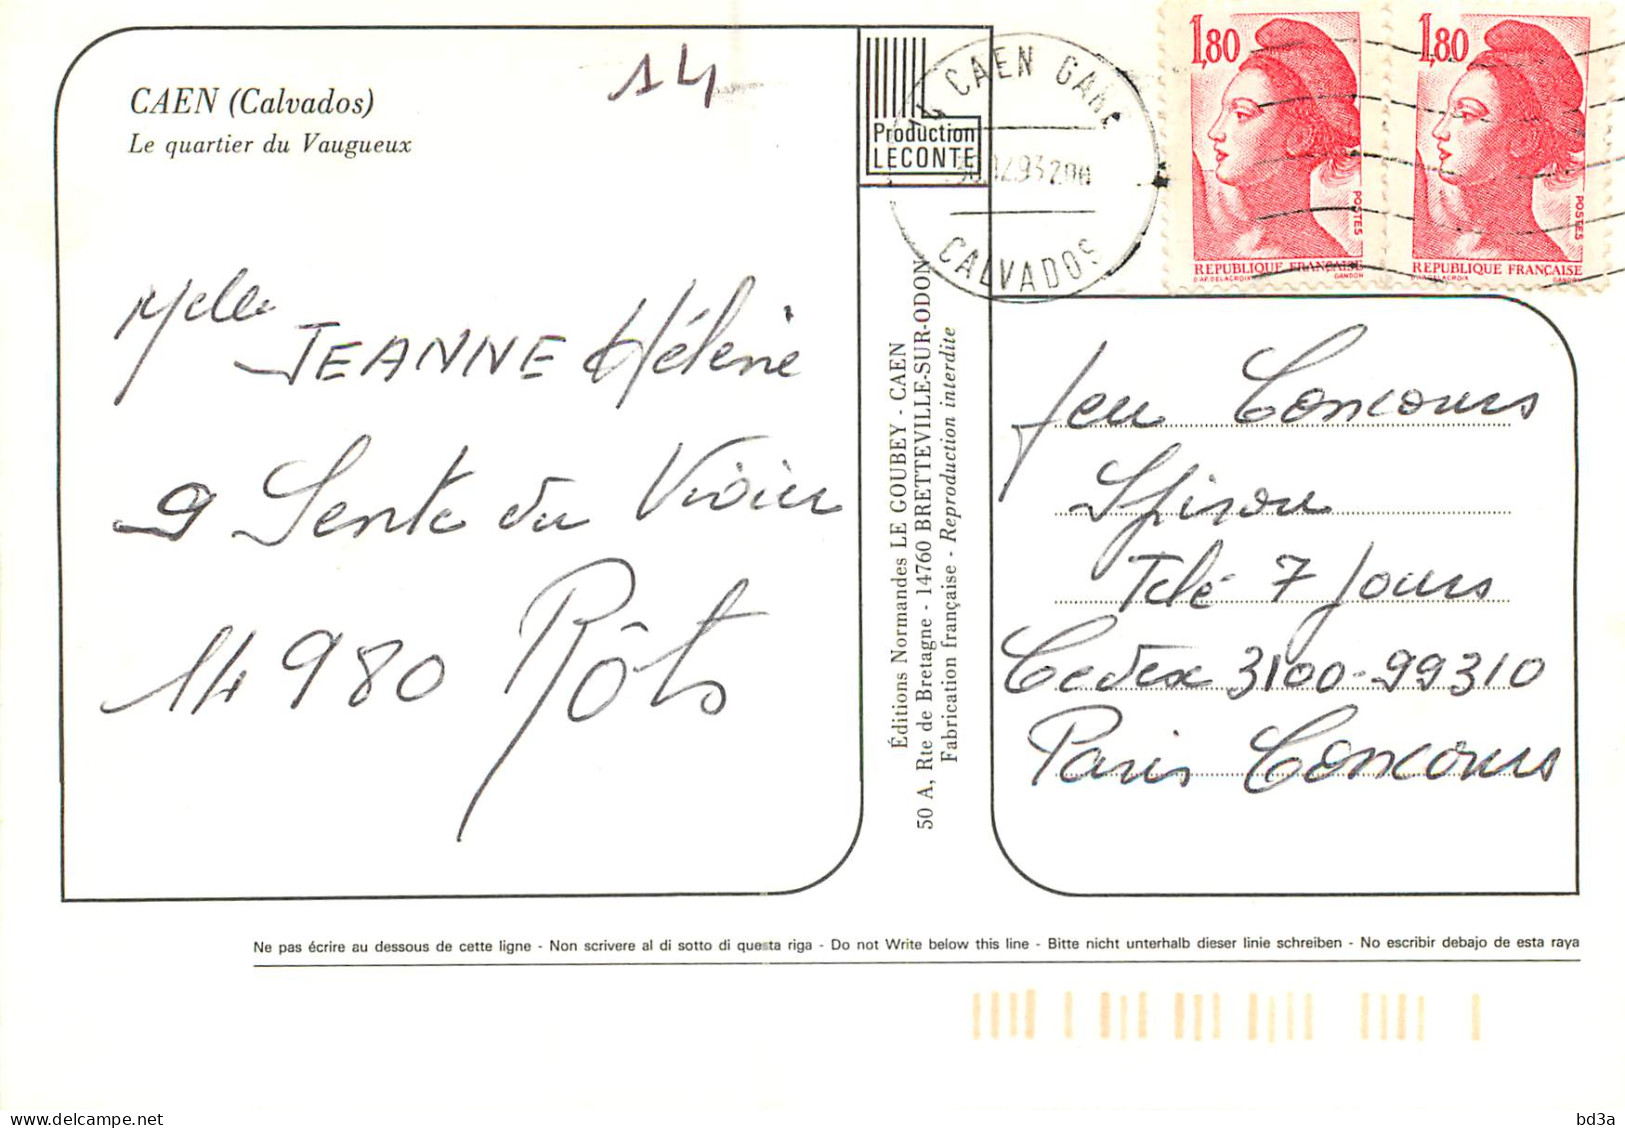 CAEN (Calvados)
Le quartier du Vaugueux
14
Production
LECONTE
14 CAEN GARE
CALVADOS
1,80
POSTES
REPUBLIQUE FRANÇAISE
D'AP. DELACROIX GANDON
1,80
POSTES
REPUBLIQUE FRANÇAISE
D'AP. DELACROIX GANDON
Melle JEANNE Hélène
9 Sente du Vivier
14980 Rôts
Éditions Normandes LE GOUBEY - CAEN
50 A, Rte de Bretagne - 14760 BRETTEVILLE-SUR-ODON
Fabrication française - Reproduction interdite
Jeu Concours
Spirou
Télé 7 Jours
Cedex 3100-99310
Paris Concours
Ne pas écrire au dessous de cette ligne - Non scrivere al di sotto di questa riga - Do not Write below this line - Bitte nicht unterhalb dieser linie schreiben - No escribir debajo de esta raya
bd3a